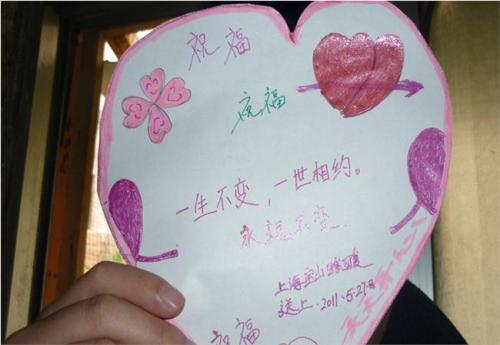 祝福
祝福
一生不变，一世相约。
永远不变
上海宝山
送上·2011·5·27日
祝福